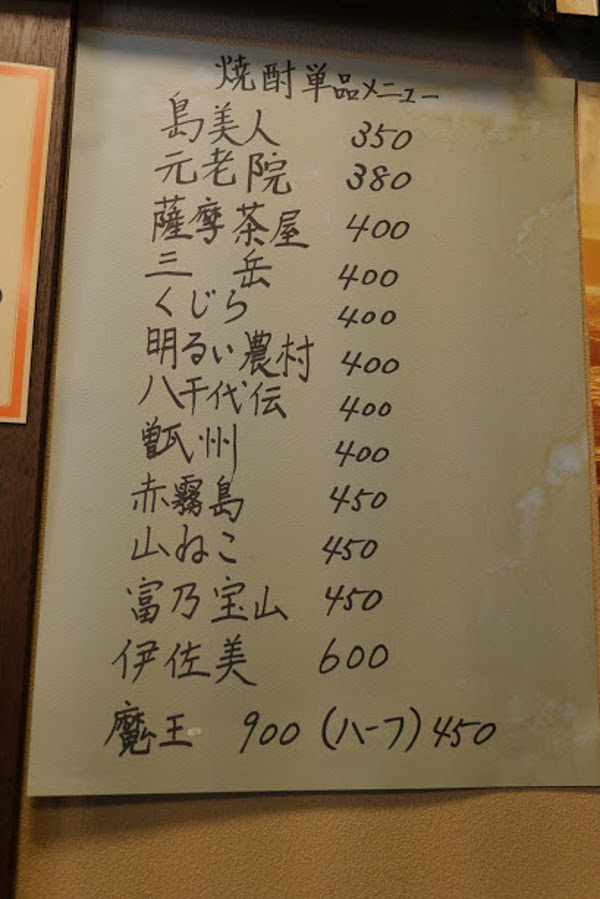 焼酎単品メニュー
島美人 350
元老院 380
薩摩茶屋 400
三岳 400
くじら 400
明るい農村 400
八千代伝 400
甑州 400
赤霧島 450
山ねこ 450
富乃宝山 450
伊佐美 600
魔王 900 (ハーフ) 450